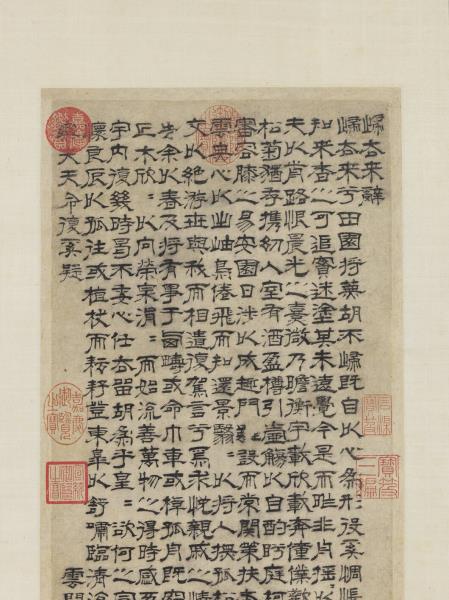 歸去來辭
歸去來兮田園將蕪胡不歸既自以心為形役奚惆悵
知來者之可追實迷塗其未遠覺今是而昨非舟搖〻以
夫以前路恨晨光之熹微乃瞻衡宇載欣載奔僮僕歡
松菊猶存攜幼入室有酒盈樽引壺觴以自酌眄庭柯
審容膝之易安園日涉以成趣門雖設而常關策扶老
雲無心以出岫鳥倦飛而知還景翳〻以將入撫孤松
交以絕游世與我而相遺復駕言兮焉求悅親戚之情
告余以春及將有事于西疇或命巾車或棹孤舟既窈
丘木欣〻以向榮泉涓〻而始流善萬物之得時感吾
宇內復幾時曷不委心任去留胡為乎皇〻欲何之
懷良辰以孤往或植杖而耘耔登東皋以舒嘯臨清
樂夫天命復奚疑
雲間